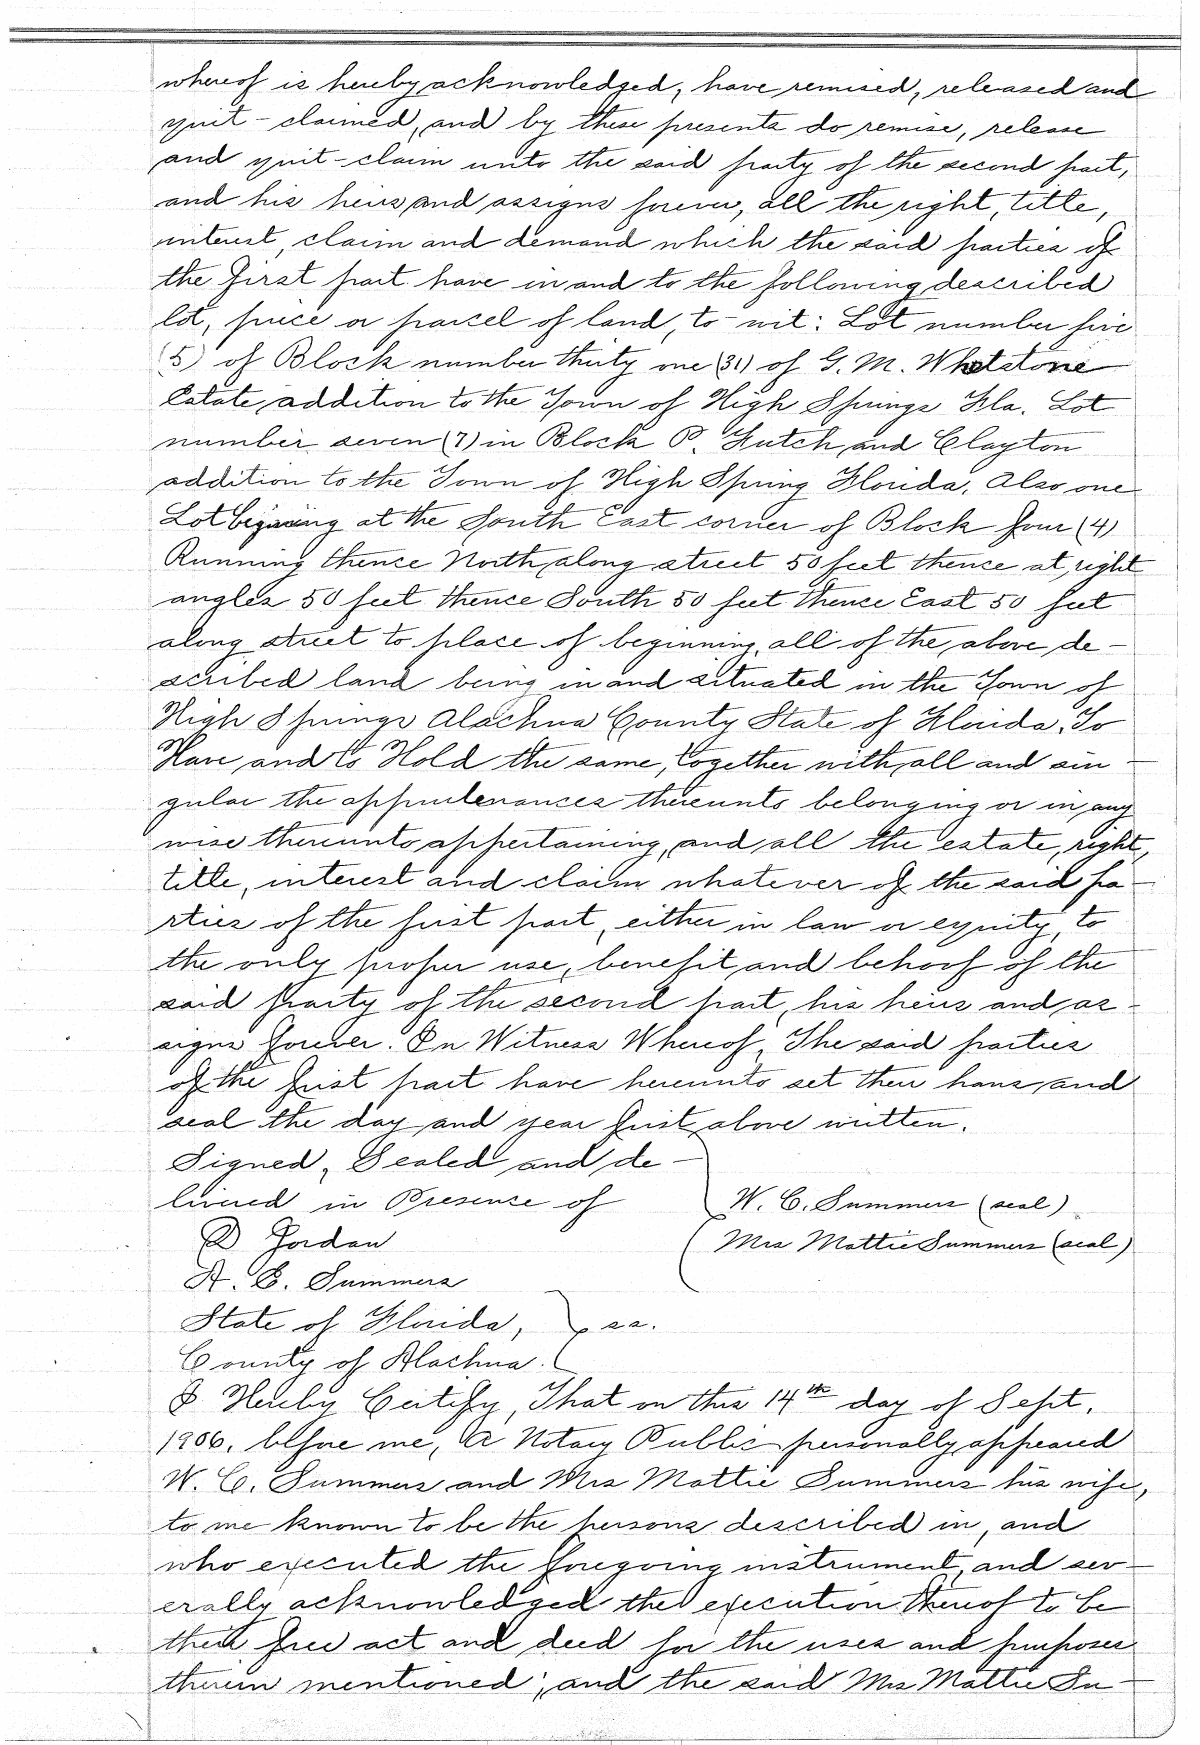 whereof is hereby acknowledged, have remised, released and
quit-claimed, and by these presents do remise, release
and quit-claim unto the said party of the second part,
and his heirs and assigns forever, all the right, title,
interest, claim and demand which the said parties of
the first part have in and to the following described
lot, piece or parcel of land, to-wit: Lot number five
(5) of Block number thirty one (31) of G. M. Whetstone
Estate addition to the Town of High Springs Fla. Lot
number seven (7) in Block P. Futch and Clayton
addition to the Town of High Spring Florida, Also one
Lot begining at the South East corner of Block four (4)
Running thence North along street 50 feet thence at right
angles 50 feet thence South 50 feet thence East 50 feet
along street to place of beginning, all of the above de-
scribed land being in and situated in the Town of
High Springs Alachua County State of Florida. To
Have and to Hold the same, together with all and sin-
gular the appurtenances thereunto belonging or in any
wise thereunto appertaining, and all the estate, right,
title, interest and claim whatever of the said pa-
rties of the first part, either in law or equity, to
the only proper use, benefit and behoof of the
said party of the second part, his heirs and as-
signs forever. In Witness Whereof, The said parties
of the first part have hereunto set their hans and
seal the day and year first above written.
Signed, Sealed and de-
livered in Presence of W. C. Summers (seal)
D Jordan Mrs Mattie Summers (seal)
A. E. Summers
State of Florida, ss.
County of Alachua.
I Hereby Certify, That on this 14th day of Sept.
1906, before me, A Notary Public personally appeared
W. C. Summers and Mrs Mattie Summers his wife,
to me known to be the persons described in, and
who executed the foregoing instrument, and sev-
erally acknowledged the execution thereof to be
their free act and deed for the uses and purposes
therein mentioned; and the said Mrs Mattie Su-